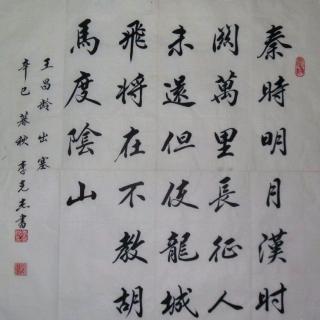 秦時明月漢时
関萬里長征人
未還但使龍城
飛将在不教胡
馬度陰山
王昌龄出塞
辛巳暮秋李克杰書